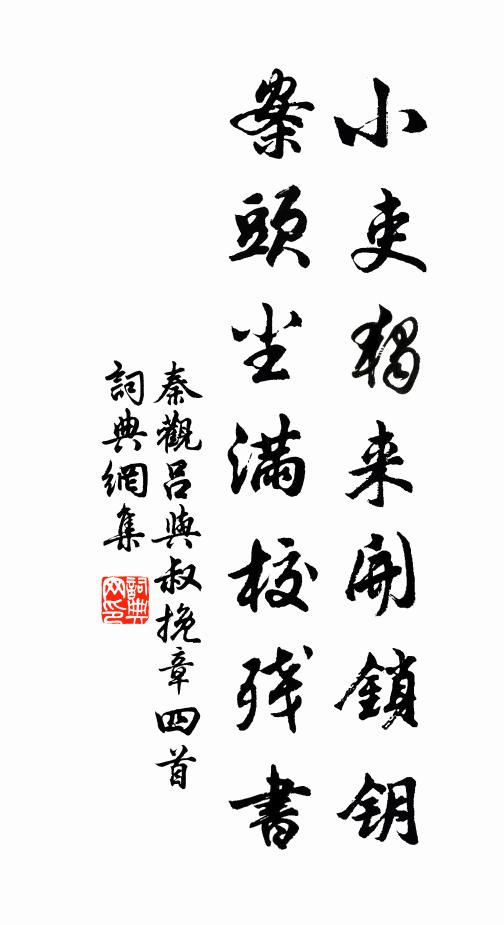 小吏獨来開鎖钥
案頭尘满校残書
秦觀呂與叔挽章四首
詞典網集
詞典网印